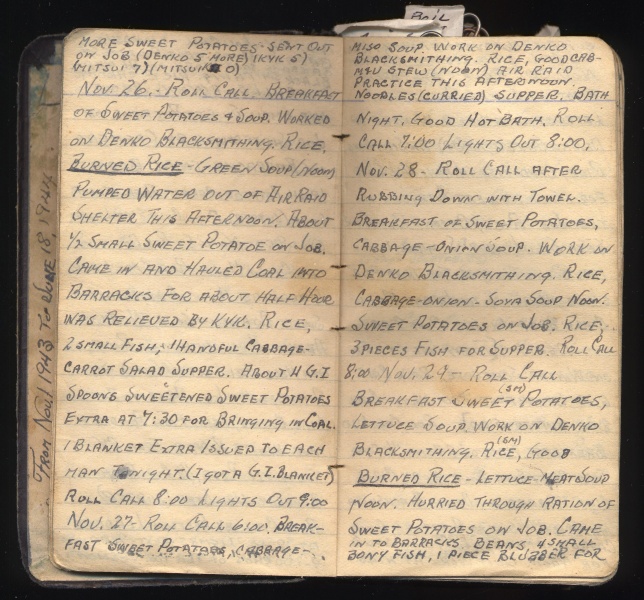 MORE SWEET POTATOES. SENT OUT
ON JOB (DENKO 5 MORE) (KYK 5)
(MITSUI 7) (MITSUI 0)
NOV. 26,- ROLL CALL. BREAKFAST
OF SWEET POTATOES & SOUP. WORKED
ON DENKO BLACKSMITHING. RICE,
BURNED RICE - GREEN SOUP (NOON)
PUMPED WATER OUT OF AIR RAID
SHELTER THIS AFTERNOON. ABOUT
1/2 SMALL SWEET POTATOE ON JOB.
CAME IN AND HAULED COAL INTO
BARRACKS FOR ABOUT HALF HOUR
WAS RELIEVED BY KYK. RICE,
2 SMALL FISH, 1 HANDFUL CABBAGE-
CARROT SALAD SUPPER. ABOUT 4 G.I
SPOONS SWEETENED SWEET POTATOES
EXTRA AT 7:30 FOR BRINGING IN COAL.
1 BLANKET EXTRA ISSUED TO EACH
MAN TONIGHT. (I GOT A G.I. BLANKET)
ROLL CALL 8:00 LIGHTS OUT 9:00
NOV. 27- ROLL CALL 6:00. BREAK-
FAST SWEET POTATOES, CABBAGE-
FROM NOV. 1 1943 TO JUNE 18, 1944
MISO SOUP. WORK ON DENKO
BLACKSMITHING. RICE, GOOD CAB-
STEW (NOON) AIR RAID
PRACTICE THIS AFTERNOON.
NOODLES (CURRIED) SUPPER. BATH
NIGHT, GOOD HOT BATH. ROLL
CALL 7:00 LIGHTS OUT 8:00,
NOV. 28- ROLL CALL AFTER
RUBBING DOWN WITH TOWEL.
BREAKFAST OF SWEET POTATOES,
CABBAGE-ONION SOUP. WORK ON
DENKO BLACKSMITHING. RICE,
CABBAGE-ONION-SOYA SOUP NOON.
SWEET POTATOES ON JOB. RICE,
3 PIECES FISH FOR SUPPER. ROLL CALL
8:00 NOV. 29- ROLL CALL
BREAKFAST SWEET (SM) POTATOES,
LETTUCE SOUP. WORK ON DENKO
BLACKSMITHING. RICE, (SM) GOOD
BURNED RICE - LETTUCE-MEAT SOUP
NOON. HURRIED THROUGH RATION OF
SWEET POTATOES ON JOB. CAME
IN TO BARRACKS BEANS, 4 SMALL
BONY FISH, 1 PIECE BLUBBER FOR